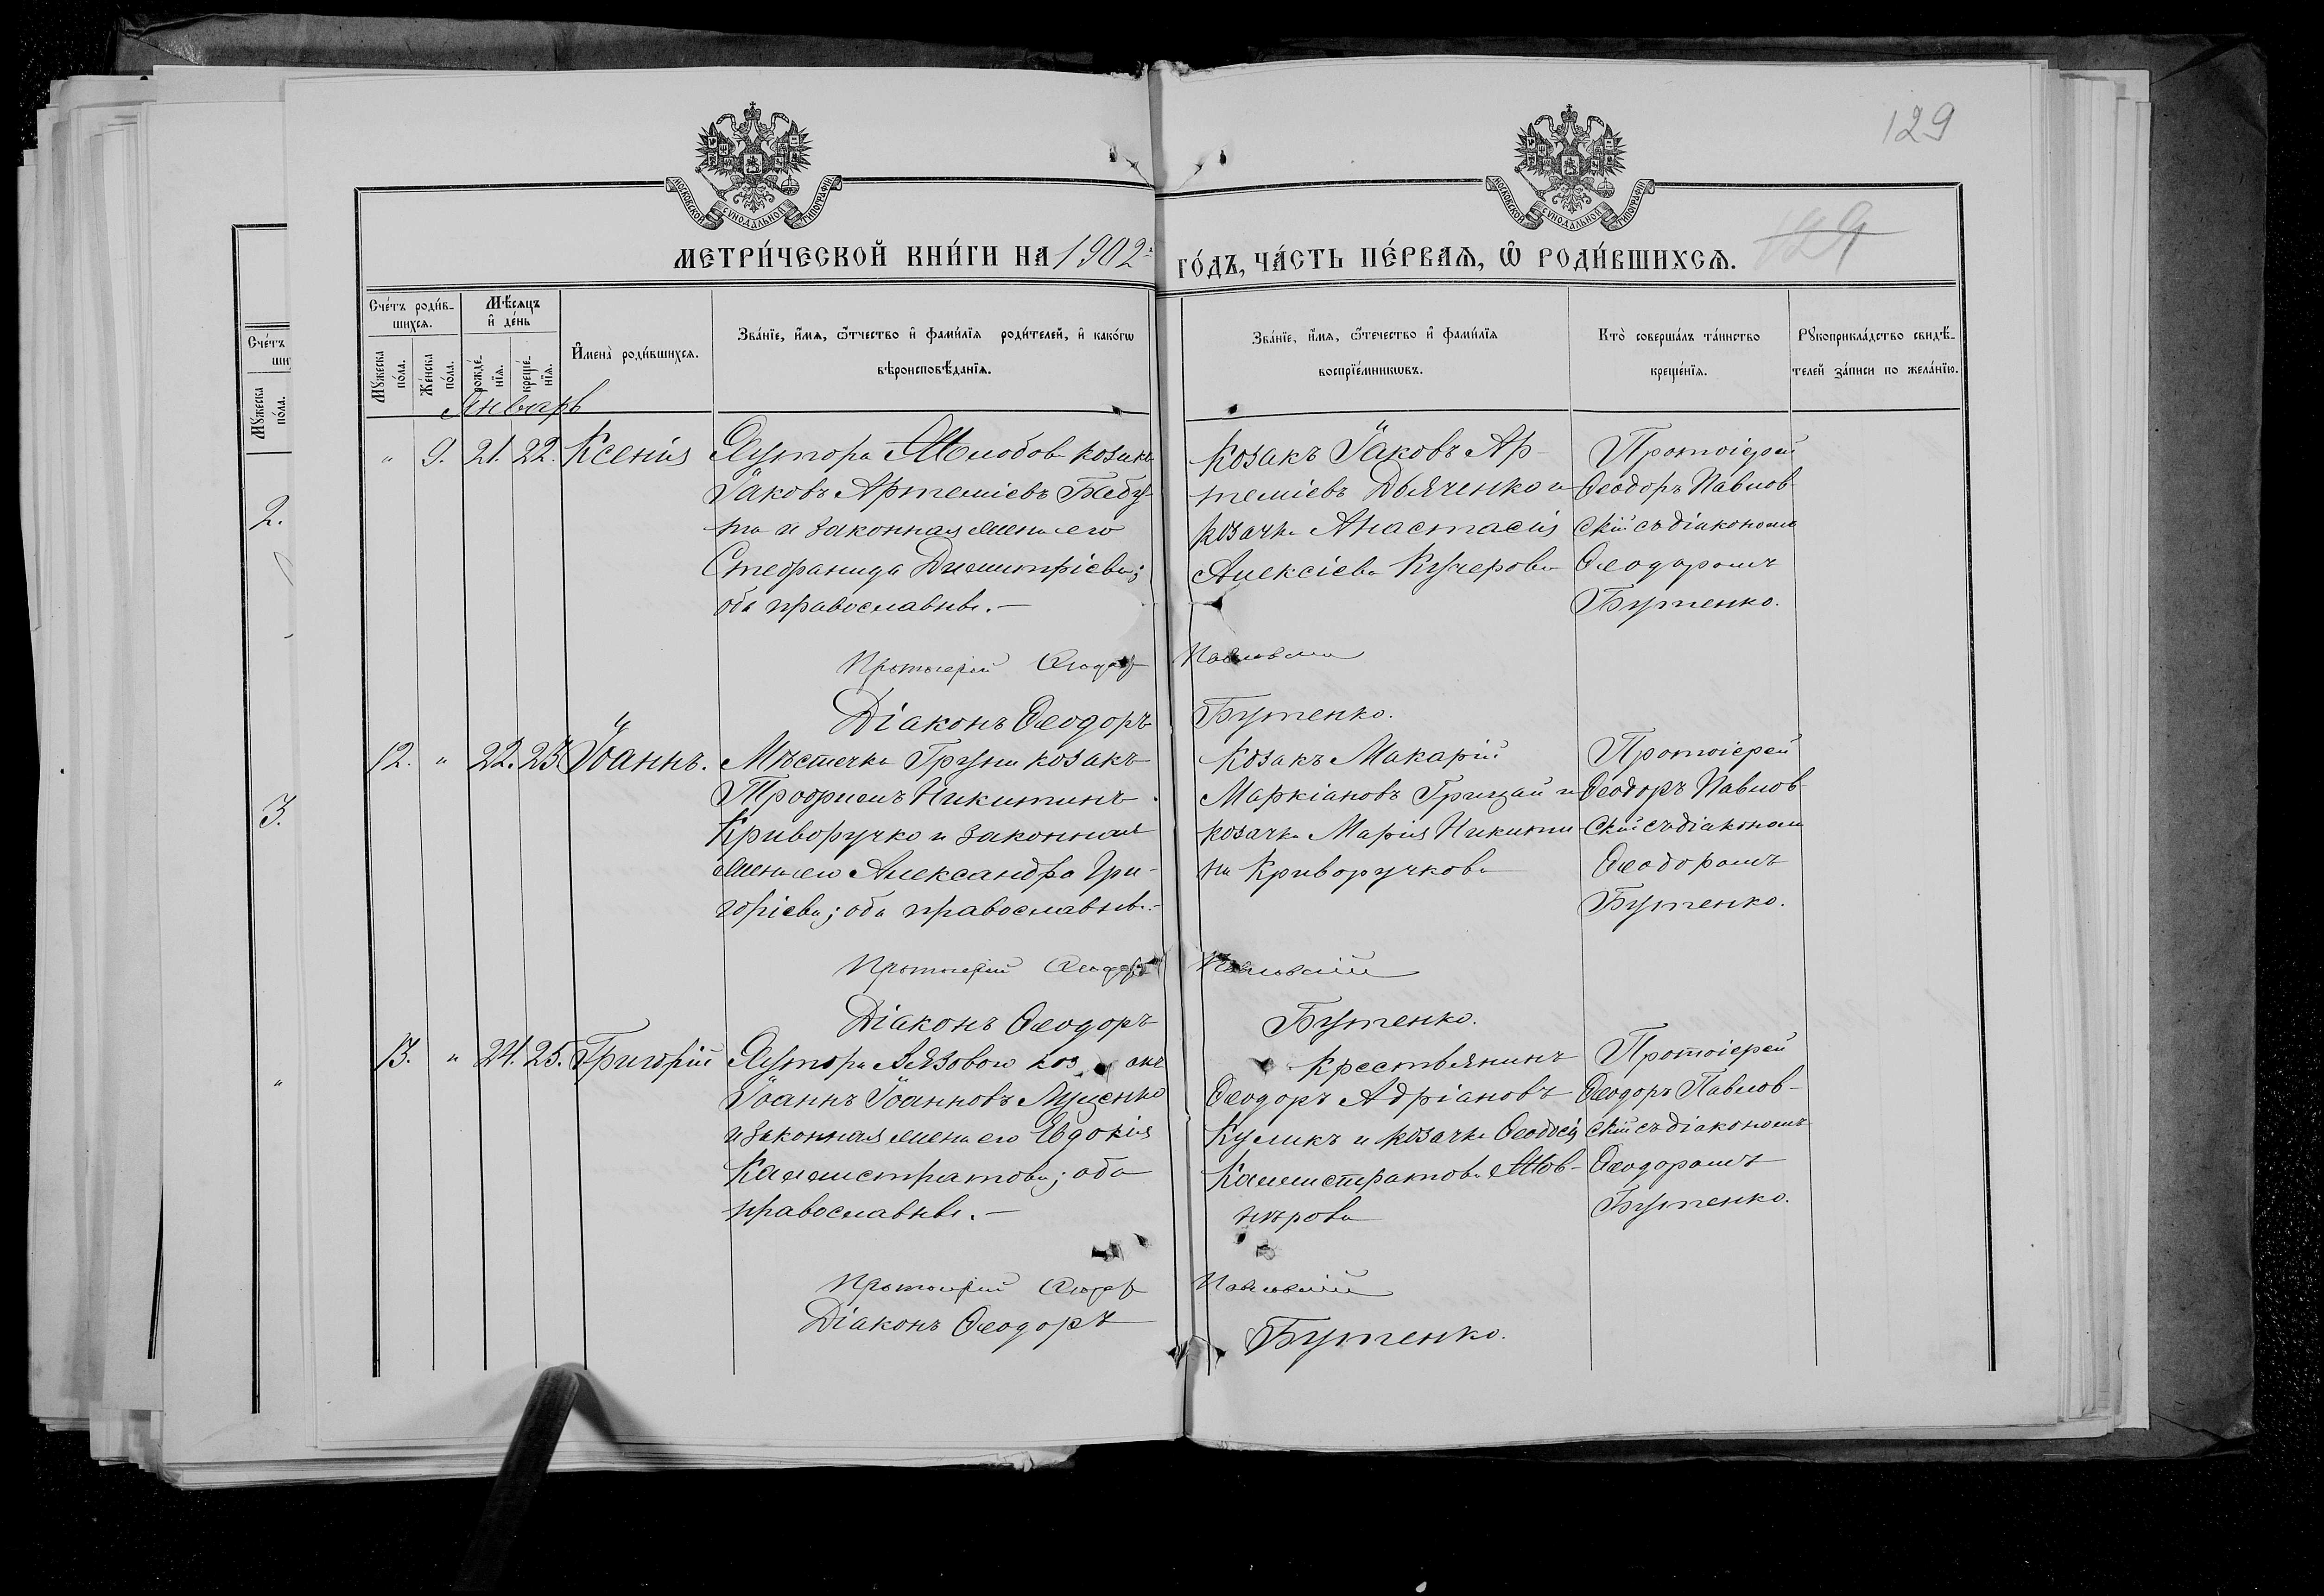 129
МОСКОВСКОЙ СѴНОДАЛЬНОЙ ТИПОГРАФІИ
МОСКОВСКОЙ СѴНОДАЛЬНОЙ ТИПОГРАФІИ
129
МЕТРИ́ЧЕСКОЙ КНИ́ГИ НА 1902 ГО́ДЪ, ЧА́СТЬ ПЕ́РВАѦ, Ѡ҆ РОДИ́ВШИХСѦ.
Сче́тъ роди́в-
шихсѧ.
Мꙋ́жеска по́ла.
Же́нска по́ла.
Мѣ́сѧцъ
и҆ де́нь
рожде́-
нїѧ.
креще́-
нїѧ.
И҆мена̀ роди́вшихсѧ.
Зва́нїе, и҆́мѧ, ѻ҆́тчество и҆ фами́лїѧ роди́телей, и҆ како́гѡ
вѣроисповѣ́данїѧ.
Зва́нїе, и҆́мѧ, ѻ҆́течество и҆ фами́лїѧ
воспрїе́мникѡвъ.
Кто̀ соверша́лъ та́инство
креще́нїѧ.
Рꙋкоприкла́дство свидѣ́-
телей за́писи по жела́нїю.
Сче́тъ
Мꙋ́жеска
по́ла.
2.
3.
"
Январь
" 9. 21. 22. Ксенія
Хутора козакъ
Іаковъ Артеміевъ
та и законная жена его
Стефанида Димитріева;
оба православные.—
Козакъ Іаковъ Ар-
теміевъ Дьяченко и
козачка Анастасія
Алексіева Кучерова
Протоіерей
Ѳеодоръ Павлов-
скій съ діакономъ
Ѳеодоромъ
Бутенко.
Протоіерей Ѳеодоръ Павловскій
Діаконъ Ѳеодоръ Бутенко.
12. " 22. 23. Іоаннъ.
Мѣстечка Груни козакъ
Трофимъ Никитинъ
Криворучко и законная
жена его Александра Гри-
горіева; оба православные.—
Козакъ Макарій
Маркіановъ Грицай и
козачка Марія Никити
на Криворучкова
Протоіерей
Ѳеодоръ Павлов-
скій съ діакономъ
Ѳеодоромъ
Бутенко.
Протоіерей Ѳеодоръ Павловскій
Діаконъ Ѳеодоръ Бутенко.
13. " 24. 25. Григорій
Хутора Вязового козакъ
Іоаннъ Іоанновъ Луценко
и законная жена его Евдокія
Каллистратова; оба
православные.—
Крестьянинъ
Ѳеодоръ Адріановъ
Куликъ и козачка Ѳеодосія
Каллистратова Жов-
нѣрова
Протоіерей
Ѳеодоръ Павлов-
скій съ діакономъ
Ѳеодоромъ
Бутенко.
Протоіерей Ѳеодоръ Павловскій
Діаконъ Ѳеодоръ Бутенко.